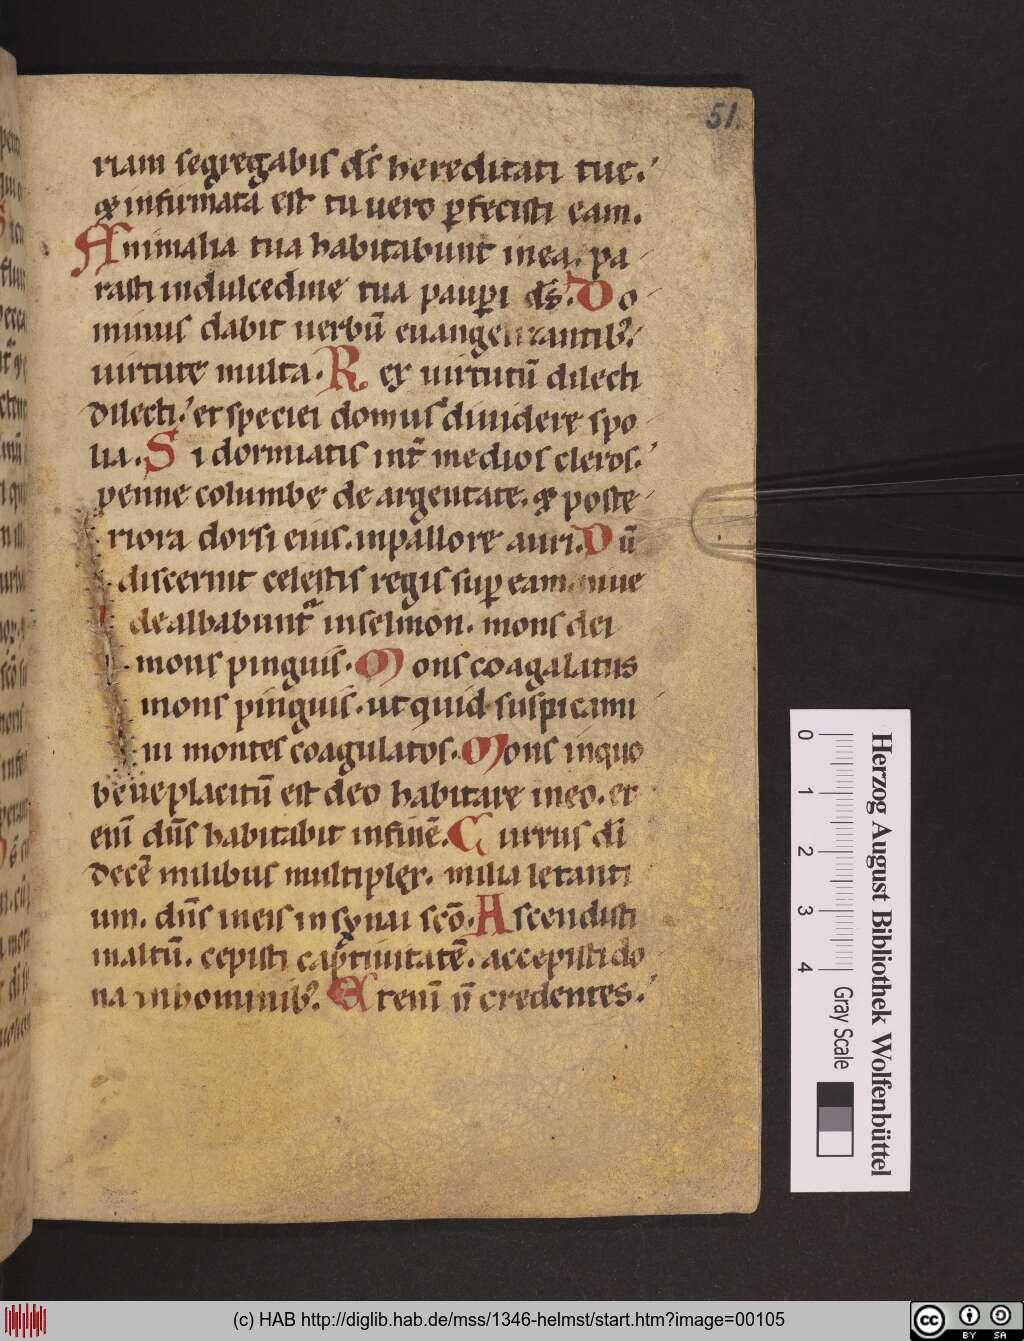 51.
riam segregabis ds̄ hereditati tue.
⁊ infirmata est tu uero ꝑfecisti eam.
Animalia tua habitabunt in ea. pa
rasti in dulcedine tua pauꝑi ds̄. Do
minus dabit uerbū euangelizantib;
uirtute multa. Rex uirtutū dilecti
dilecti. et speciei domus diuidere spo
lia. Si dormiatis int̄ medios cleros.
penne columbe de argentate. ⁊ poste
riora dorsi eius. in pallore auri. Dū
discernit celestis regis suꝑ eam niue
dealbabunt in selmon. mons dei
mons pinguis. Mons coagalatus
mons pinguis. ut quid suspicami
ni montes coagulatos. Mons in quo
beneplacitū est deo habitare in eo. et
enī dn̄s habitabit in finē. Currus dī
decē milibus multiplex. milia letanti
um. dn̄s in eis in synai scō. Ascendisti
in altū. cepisti captiuitatē. accepisti do
na in hominib;. Etenī ñ credentes.
Herzog August Bibliothek Wolfenbüttel
0 1 2 3 4
Gray Scale
(c) HAB http://diglib.hab.de/mss/1346-helmst/start.htm?image=00105
cc BY SA